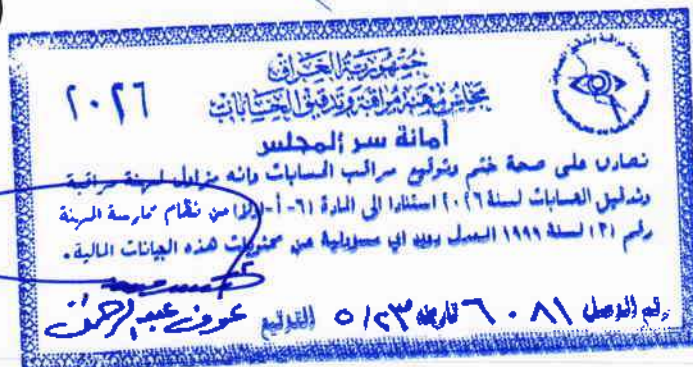 جمهورية العراق
مجلس مهنة مراقبة وتدقيق الحسابات
٢٠٢٦
أمانة سر المجلس
نصادق على صحة ختم وتوقيع مراقب الحسابات وانه مزاول لمهنة مراقبة
وتدقيق الحسابات لسنة ٢٠٢٦ استنادا الى المادة (٦- أ-اولا) من نظام ممارسة المهنة
رقم (٣) لسنة ١٩٩٩ المعدل بدون اي مسؤولية عن محتويات هذه البيانات المالية.
رقم الوصل ٦٠٨١ تاريخه ٥/٢٣ التوقيع عوف عبد الرحمن